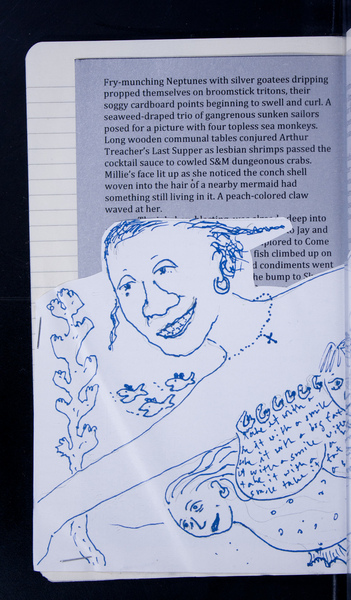 Fry-munching Neptunes with silver goatees dripping
propped themselves on broomstick tritons, their
soggy cardboard points beginning to swell and curl. A
seaweed-draped trio of gangrenous sunken sailors
posed for a picture with four topless sea monkeys.
Long wooden communal tables conjured Arthur
Treacher's Last Supper as lesbian shrimps passed the
cocktail sauce to cowled S&M dungeonous crabs.
Millie's face lit up as she noticed the conch shell
woven into the hair of a nearby mermaid had
something still living in it. A peach-colored claw
waved at her.
deep into
Jay and
to Come
fish climbed up on
condiments went
he bump to
take it with
it with a smile
take it with a big fat
it with a smile
take it with a
smile take it